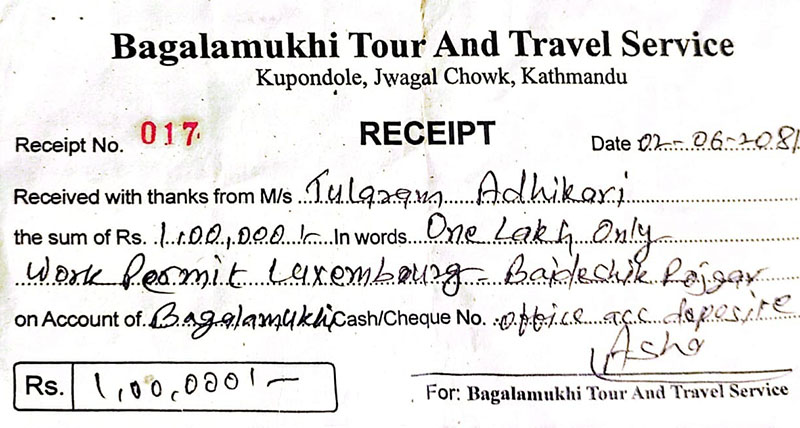 Bagalamukhi Tour And Travel Service
Kupondole, Jwagal Chowk, Kathmandu
Receipt No. 017
RECEIPT
Date 02-06-2081
Received with thanks from M/s Tularam Adhikari
the sum of Rs. 1,00,000/- In words One Lakh Only
Work Permit Luxembourg - Baideshik Rojgar
on Account of Bagalamukhi Cash/Cheque No. office acc deposite
Asha
Rs. 1,00,000/-
For: Bagalamukhi Tour And Travel Service